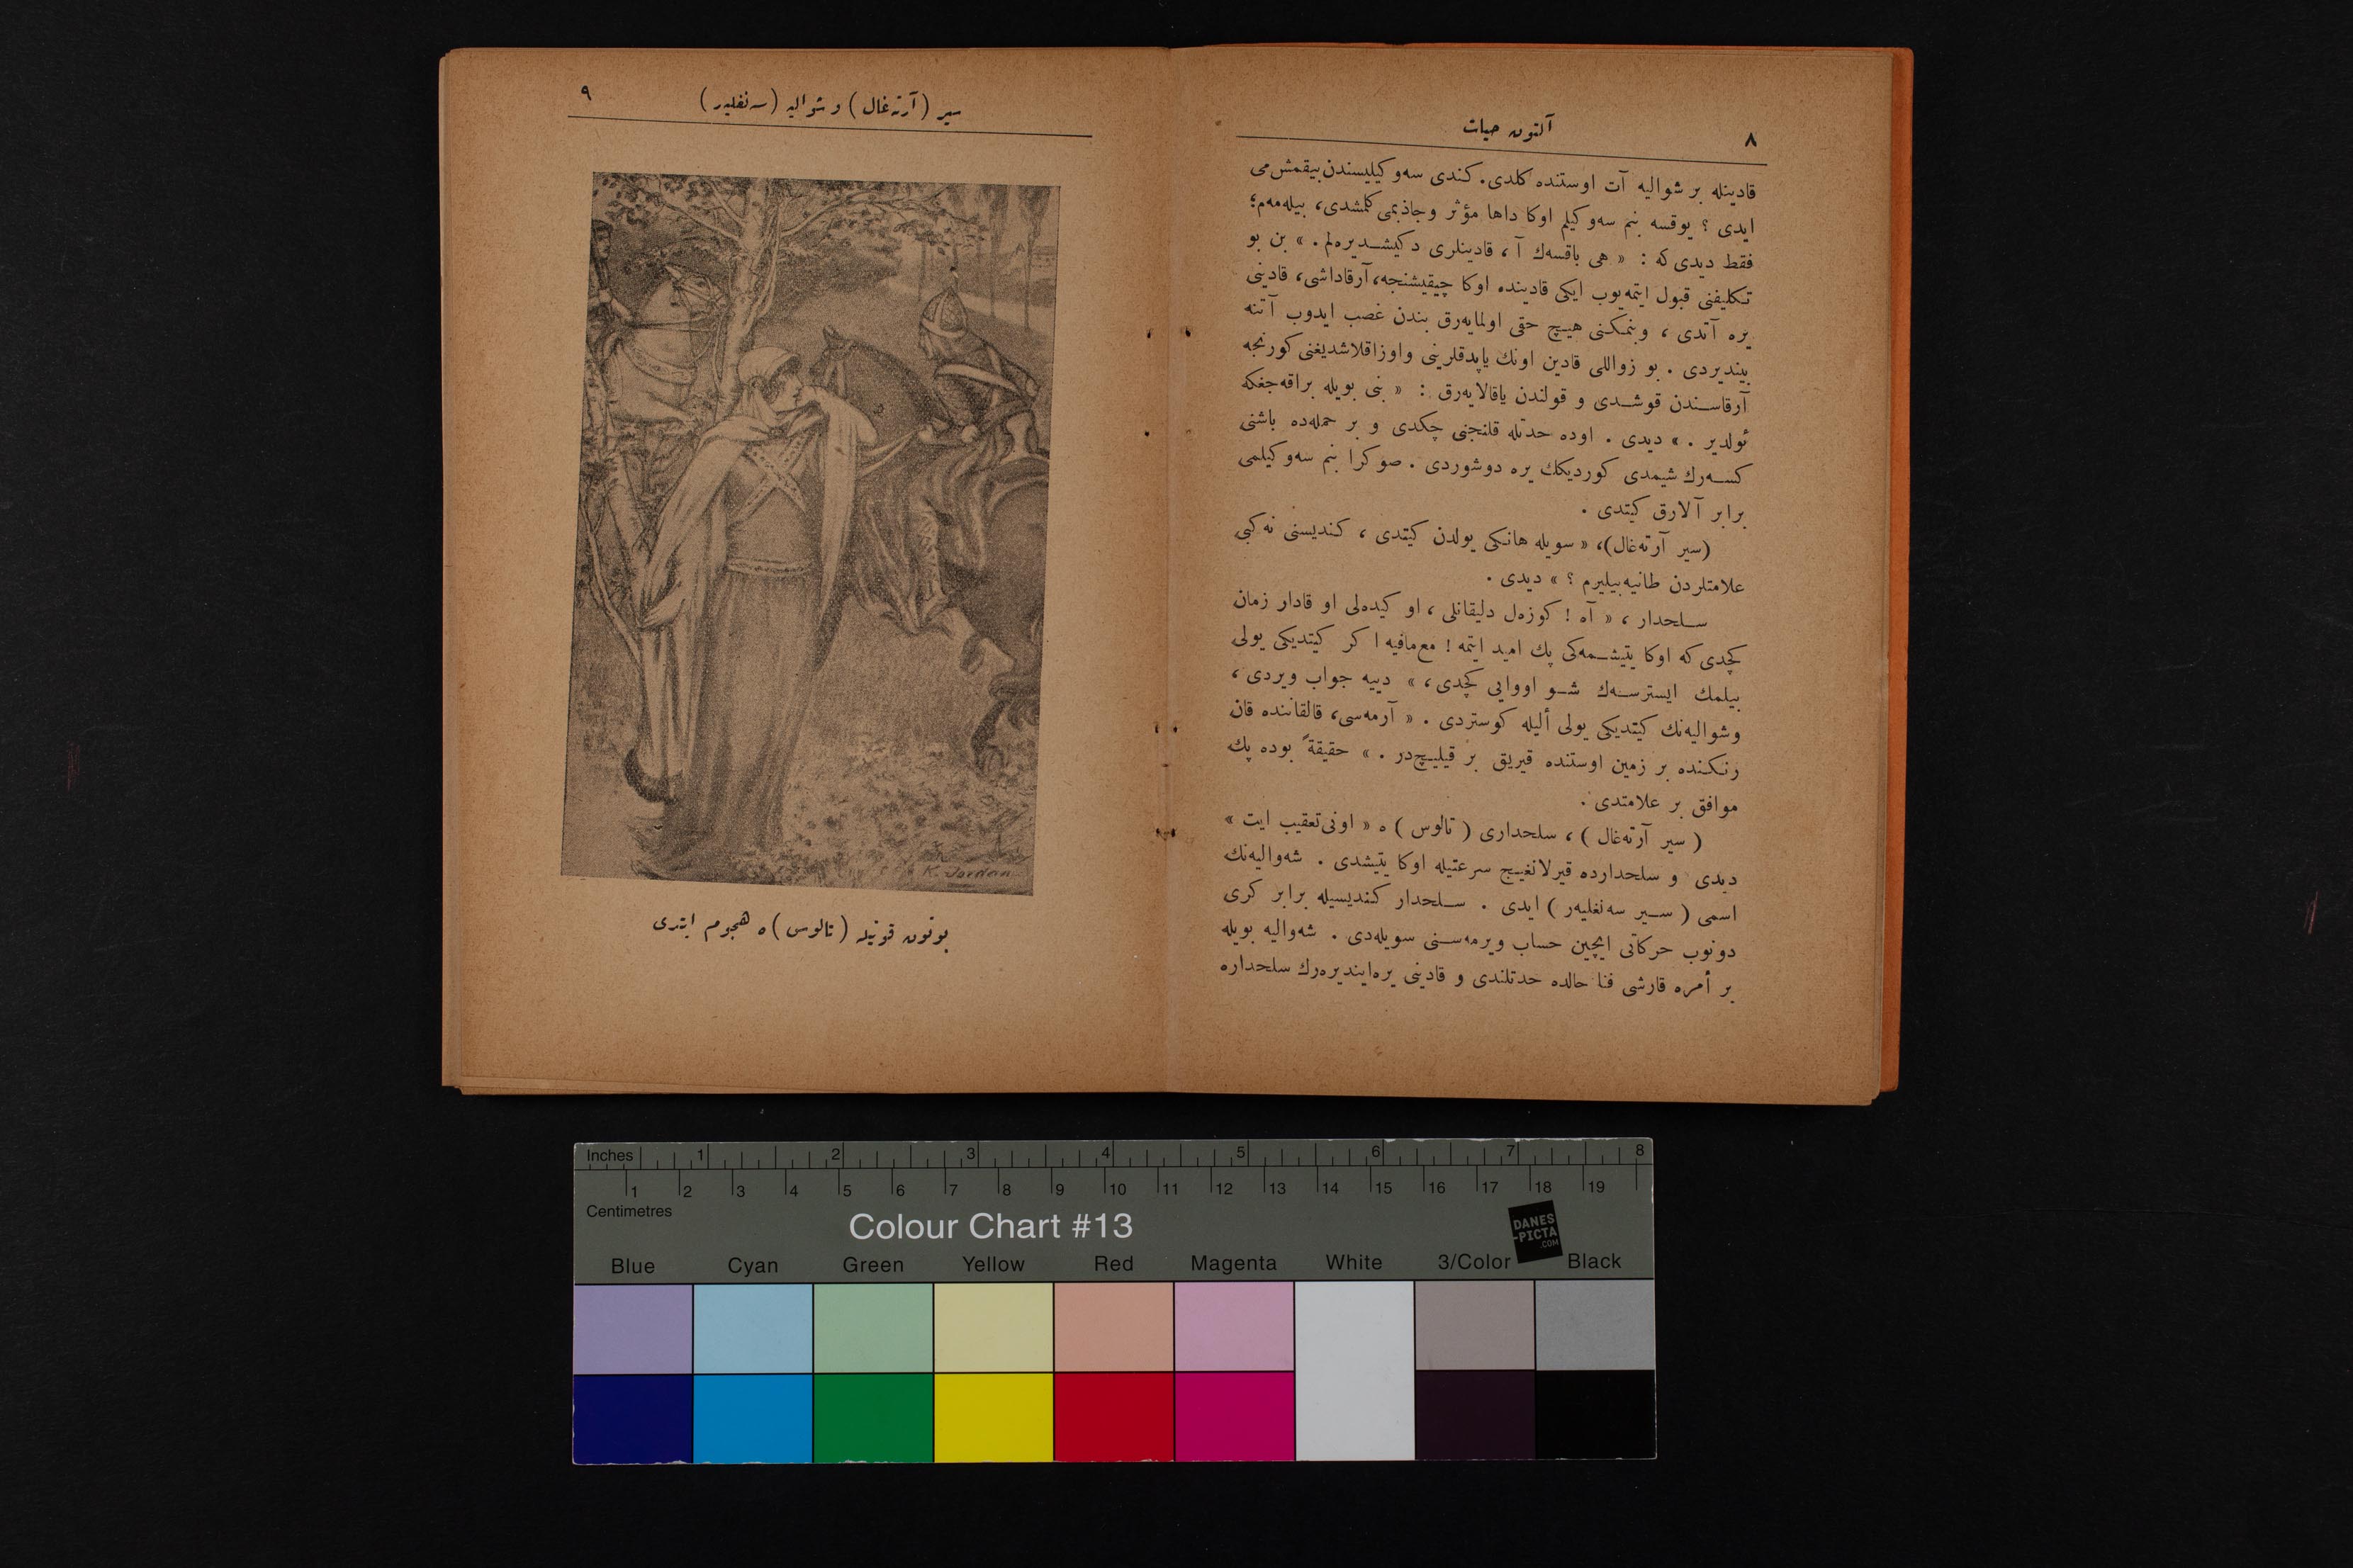 ٨
آلتون حیات
قادینله بر شوالیه آت اوستنده کلدی. کندی سه‌وکیلیسندن بیقمش‌می
ایدی ؟ یوقسه بنم سه‌وکیلم اوکا داها مؤثر وجاذبمی کلمشدی، بیله‌مه‌م؛
فقط دیدی که : « هی باقسه‌ك آ ، قادینلری دکیشـدیره‌لم . » بن بو
تکلیفنی قبول ایتمه‌یوب ایکی قادینده اوکا چیقیشنجه، آرقاداشی، قادینی
یره آتدی ، وبنمکنی هیـچ حقی اولمایه‌رق بندن غصب ایدوب آتنه
بیندیردی . بو زواللی قادین اونك یاپدقلرینی واوزاقلاشدیغنی کورنجه
آرقاسـندن قوشـدی و قولندن یاقالایه‌رق : « بنی بویله براقه‌جغکه
ئولدیر . » دیدی . اوده حدتله قلنجنی چکدی و بر حمله‌ده باشنی
کسـه‌رك شیمدی کوردیکك یره دوشوردی . صوکرا بنم سه‌وکیلمی
برابر آلارق کیتدی .
(سیر آرته‌غال)، « سویله هانکی یولدن کیتدی ، کندیسنی نه کبی
علامتلردن طانیه‌بیلیرم ؟ » دیدی .
سـلحدار ، « آه ! کوزه‌ل دلیقانلی ، او کیده‌لی او قادار زمان
کچدی که اوکا یتیشـمه‌کی پك امید ایتمه ! مع‌مافیه اکر کیتدیکی یولی
بیلمك ایسترسـه‌ك شـو اووایی کچدی، » دییه جواب ویردی ،
وشوالیه‌نك کیتدیکی یولی ألیله کوستردی . « آرمه‌سی، قالقاننده قان
رنکنده بر زمین اوستنده قیریق بر قیلیـچ‌در . » حقیقةً بوده پك
موافق بر علامتدی .
( سیر آرته‌غال ) ، سلحداری ( تالوس ) ه « اونی تعقیب ایت »
دیدی و سلحدارده قیرلانغیـج سرعتیله اوکا یتیشدی . شه‌والیه‌نك
اسمی ( سـیر سه‌نغلیه‌ر ) ایدی . سـلحدار کندیسیله برابر کری
دونوب حرکاتی ایچین حساب ویرمه‌سـنی سویله‌دی . شه‌والیه بویله
بر أمره قارشی فنا حالده حدتلندی و قادینی یره‌ایندیره‌رك سلحداره
٩
سیر (آرته‌غال) و شوالیه (سه‌نغلیه‌ر)
K. Jordan
بوتون قوتیله (تالوس) ه هجوم ایتدی
Inches 1 2 3 4 5 6 7 8
1 2 3 4 5 6 7 8 9 10 11 12 13 14 15 16 17 18 19
Centimetres
Colour Chart #13
DANES
-PICTA
.COM
Blue Cyan Green Yellow Red Magenta White 3/Color Black